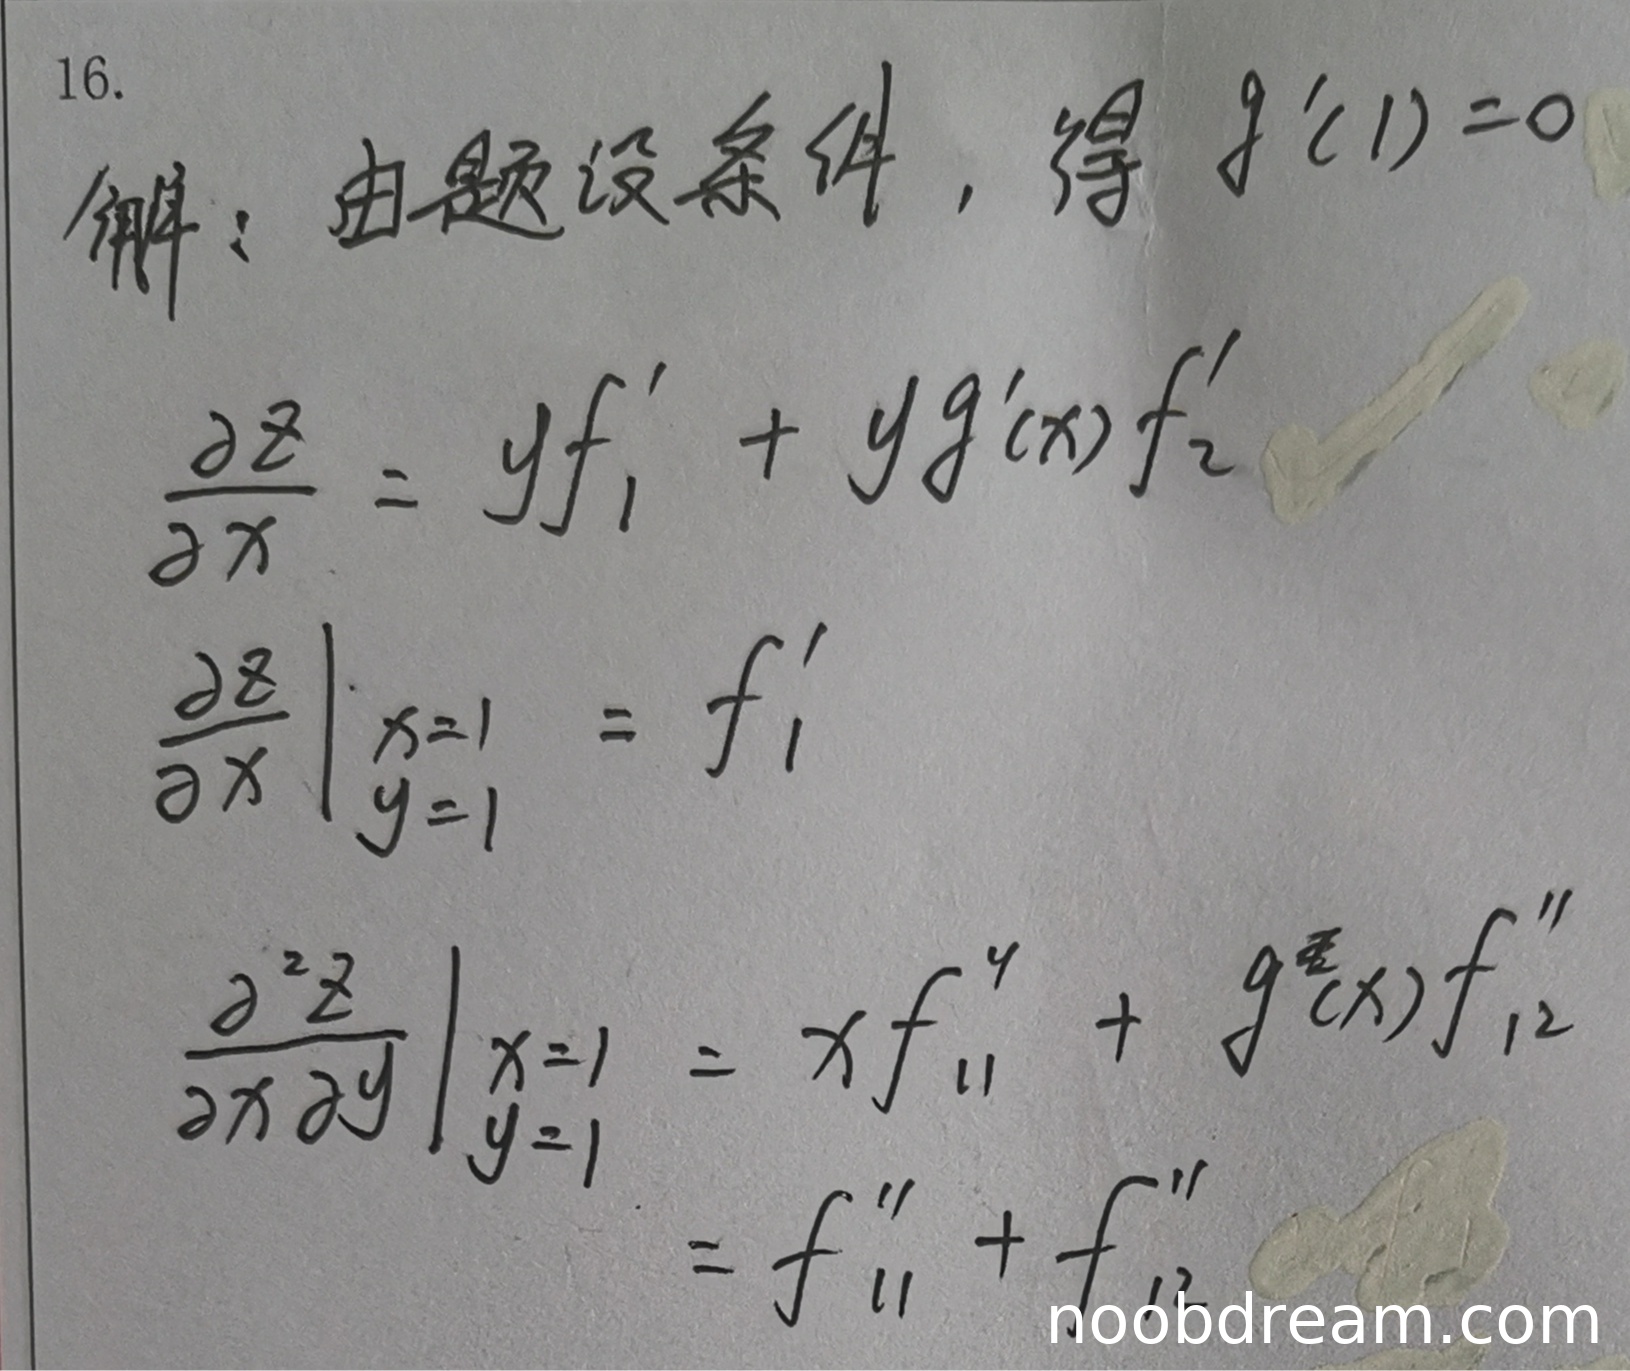 16.
解：由题设条件，得 g'(1)=0
∂z/∂x = yf₁' + yg'(x)f₂'
∂z/∂x | x=1 y=1 = f₁'
∂²z/∂x∂y | x=1 y=1 = xf₁₁'' + g(x)f₁₂''
= f₁₁'' + f₁₂''
noobdream.com